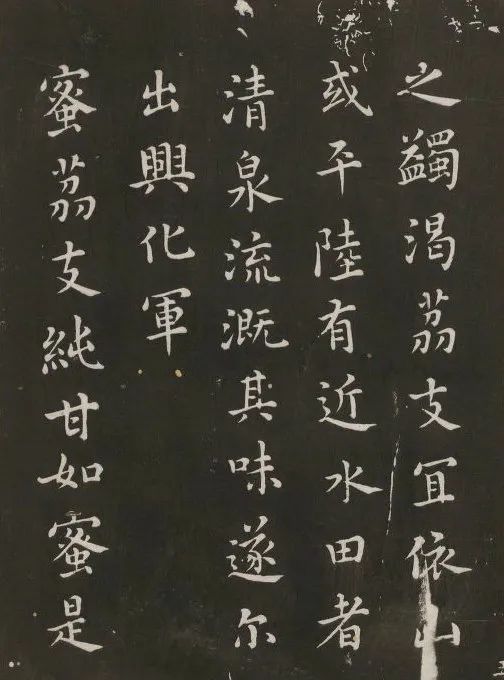 之蠲渴茘支冝依山
或平陸有近水田者
清泉流溉其味遂尔
出興化軍
蜜茘支純甘如蜜是